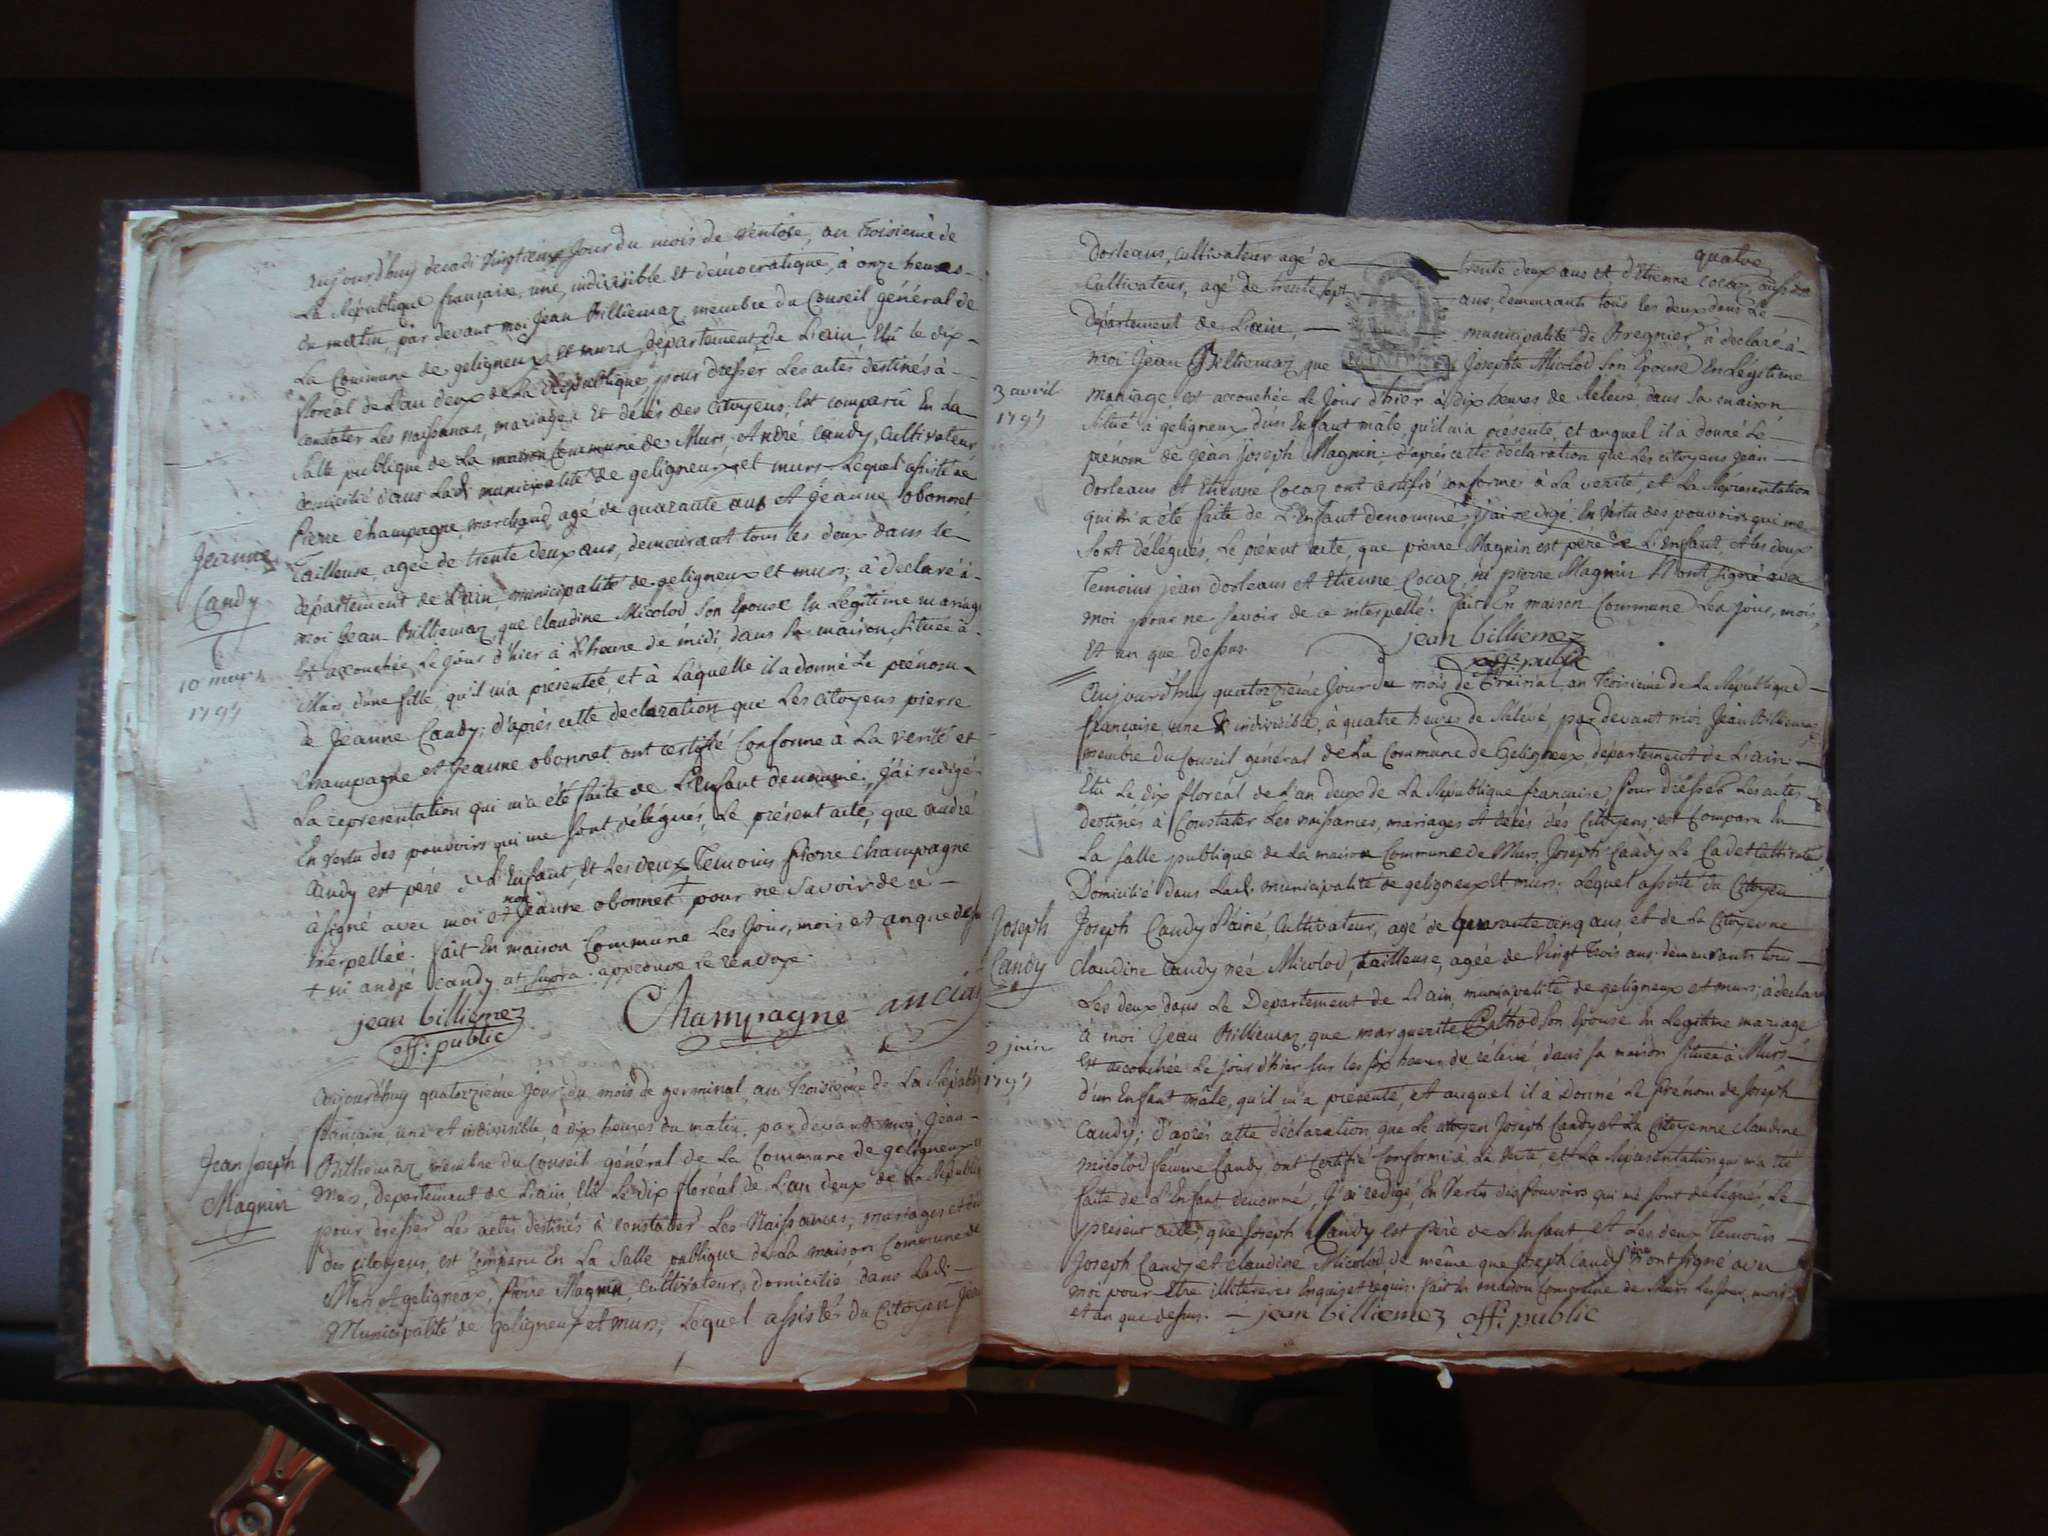 aujourd'huy decadi vingtieux jour du mois de ventôse, an troisieme de
La République française, une, indivisible et démocratique, à onze heures
du matin, par devant moi Jean Billiemaz, membre du Conseil général de
La Commune de geligneux et murs, département de L'ain, Elû le dix
floréal de L'an deux de La République, pour dresser Les actes destinés à
constater Les naissances, mariages et décès des citoyens, Est comparû En La
Salle publique de La maison Commune de Murs, André Candy, Cultivateur
domicilié dans Lad. municipalité de geligneux et murs, Lequel assisté de
Pierre Champagne, marchand, agé de quarante ans Et Jeanne obonnet
Tailleuse, agée de trente deux ans, demeurant tous les deux dans le
département de L'ain, municipalité de geligneux et murs; à déclaré à
moi Jean Billiemaz, que claudine Micolod Son Epouse En Légitime mariage
Est accouchée Le jour d'hier à L'heure de midi, dans Sa maison, Située à
Murs, d'une fille, qu'il m'a presentée, et à Laquelle il a donné Le prénom
de Jeanne Candy; d'après cette déclaration que Les citoyens pierre
champagne et Jeanne obonnet ont certifié Conforme à La verité et
La représentation qui m'a été faite de L'Enfant denommé, j'ai redigé
En vertu des pouvoirs qui me Sont délégués, Le présent acte, que André
Candy est pere de L'Enfant, Et Les deux Temoins Pierre champagne
à signé avec moi et non Jeanne obonnet + pour ne Savoir de ce
interpellée. fait En maison Commune Les Jour, mois et an que dessus
+ ni andré candy at supra. approuvé Le renvoye.
jean billiemez
off: public
Champagne ancia
Jeanne
Candy
10 mars
1795
aujourd'huy quatorzième jour du mois de germinal, an Troisieme de La Républ
française, une et indivisible, à dix heures du matin, par devant moi, Jean
Billiemaz, membre du Conseil général de La Commune de geligneux
Murs, département de L'ain, Elû Le dix floréal de L'an deux de La Republi
pour dresser Les actes destinés à constater Les Naissances, mariages et
des citoyens, est Comparu En La Salle publique de La maison Commune de
Murs et geligneux, Pierre Magnin, Cultivateur, domicilié dans Ladi
Municipalité de geligneux et murs, Lequel assisté du Citoyen Jean
Jean Joseph
Magnin
quatre
Dorleans, cultivateur agé de trente deux ans et d'Etienne Cocaz, aussi
Cultivateur, agé de trente sept ans, demeurants tous les deux dans Le
Département de L'ain, municipalité de Bregnier, à déclaré à
moi Jean Billiemaz, que Josephte Micolod Son Epouse En Légitime
mariage, est accouchée Le jour d'hier à dix heures de Relevé, dans Sa maison
Situé à geligneux d'un Enfant mâle, qu'il m'a présenté, et auquel il a donné Le
prénom de Jean Joseph Magnin; d'après cette déclaration que Les citoyens jean
dorleans et Etienne Cocaz ont certifié conforme à La verité, et La Représentation
qui m'a été faite de L'Enfant denommé, j'ai redigé, En vertu des pouvoirs qui me
Sont délégués, Le présent acte, que pierre Magnin est pere de L'Enfant, et les deux
Temoins jean dorleans et Etienne Cocaz, ni pierre Magnin N'ont signé avec
moi pour ne Savoir de ce interpellé. fait En maison Commune Les jour, mois,
Et an que dessus.
jean billiemez
off: public
3 avril
1795
Aujourd'huy quatorzième Jour du mois de Prairial an troisieme de La République
française une & indivisible, à quatre heures de Relevé, par devant moi Jean Billiemaz
membre du Conseil général de La Commune de Geligneux département de L'ain
Elû Le dix floréal de L'an deux de La République française, pour dresser Les actes
destinés à Constater Les naissances, mariages et décès des Citoyens est Comparu En
La salle publique de La maison Commune de Murs Joseph Candy Le Cadet Cultivateur
Domicilié dans Lad. municipalité de geligneux et murs; Lequel assisté du Citoyen
Joseph Candy L'ainé, Cultivateur, agé de quarante cinq ans, et de La Citoyenne
Claudine Candy née Micolod, Tailleuse, agée de Vingt Trois ans demeurants tous
Les deux dans Le Departement de L'ain, municipalité de geligneux et murs; à déclaré
à moi Jean Billiemaz, que marguerite Son Epouse En Legitime mariage
Est accouchée Le jour d'hier sur les six heures de rélévé, dans sa maison située à Murs
d'un Enfant mâle, qu'il m'a presenté, et auquel il à Donné Le Prénom de Joseph
Candy; d'après cette déclaration, que Le citoyen Joseph Candy et La Citoyenne claudine
micolod femme Candy ont Certifié Conforme à La Verité, et La Représentation qui m'a été
faite de L'Enfant denommé, j'ai redigé, En Vertu des Pouvoirs qui me sont delegués, Le
present acte, que Joseph Candy est Père de L'Enfant et Les deux Temoins
Joseph Candy et Claudine Micolod de même que Joseph Candy Père n'ont signé avec
moi pour Etre illiterés Enquis et requis. fait En maison Commune de Murs Les Jour, mois
et an que dessus. — jean billiemez off: public
Joseph
Candy
2 juin
1795